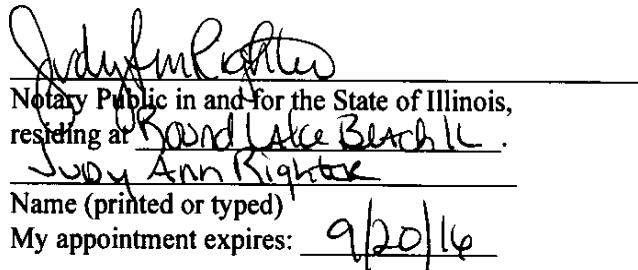 Judy Ann Righter
Notary Public in and for the State of Illinois,
residing at Round Lake Beach IL.
Judy Ann Righter
Name (printed or typed)
My appointment expires: 9/20/16